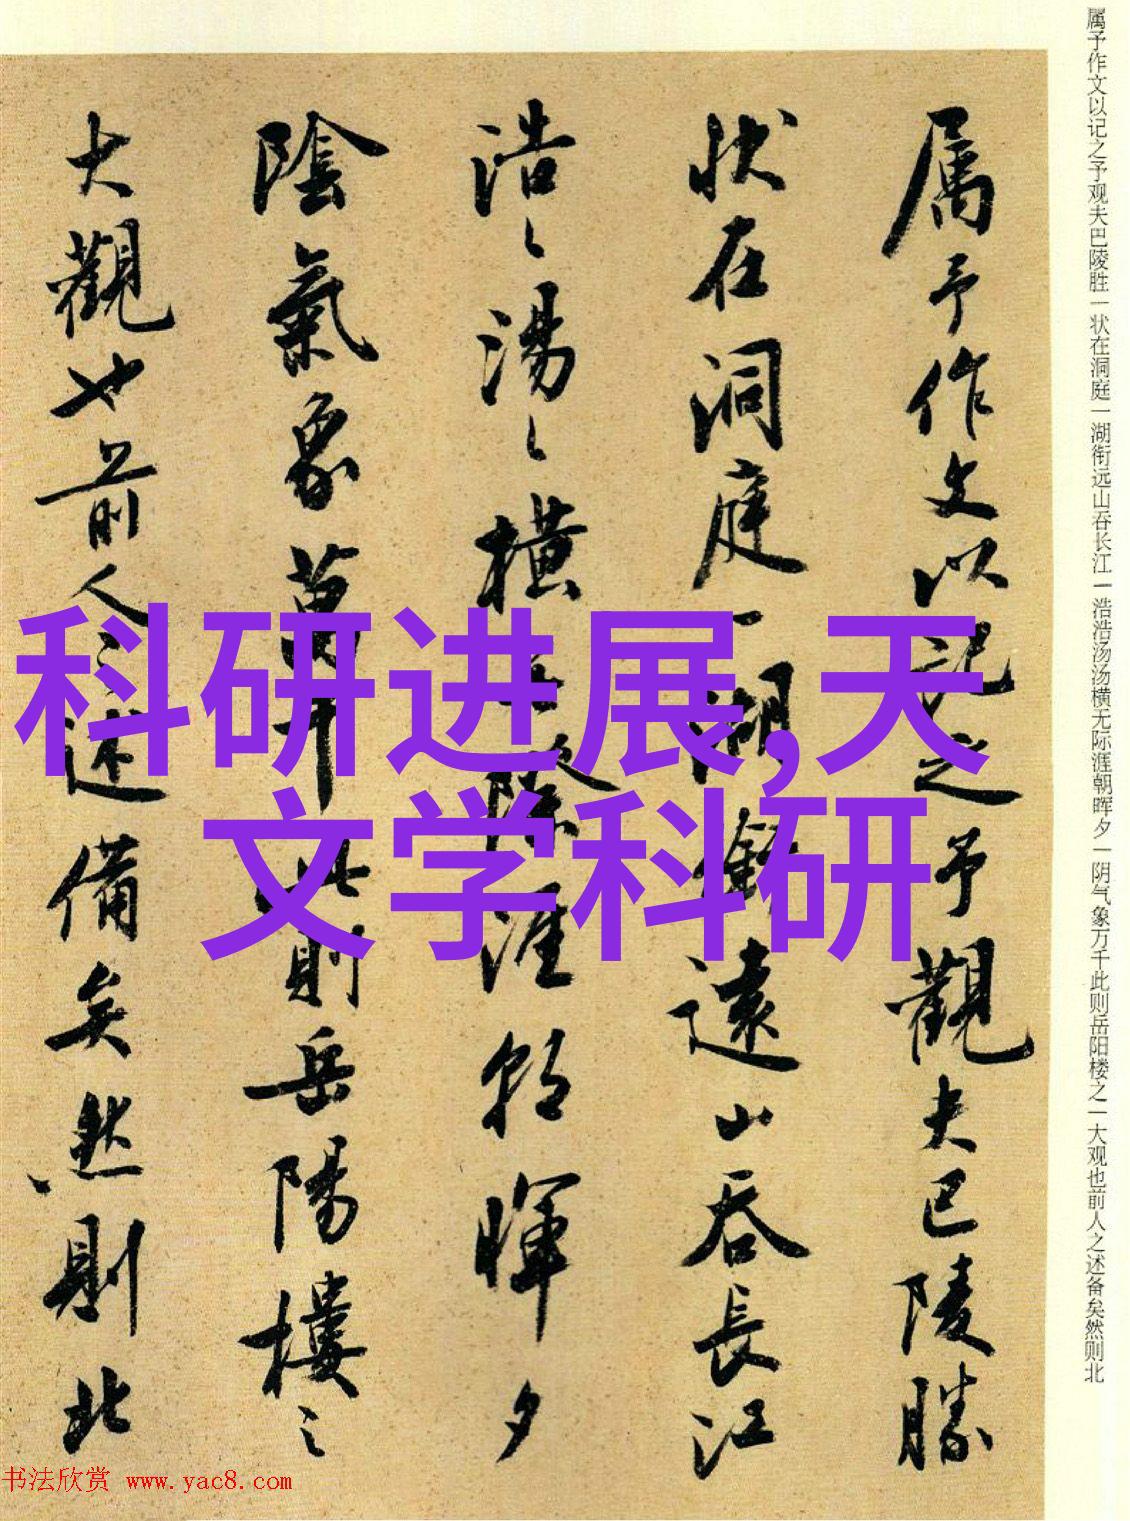 属予作文以记之予观夫巴陵胜|状在洞庭一湖衔远山吞长江|浩浩汤汤横无际涯朝晖夕|阴气象万千此则岳阳楼之|大观也前人之述备矣然则北
属予作文以記之予觀夫巴陵勝
状在洞庭一湖銜遠山吞長江
浩〻湯〻橫无際涯朝暉夕
陰氣象萬千此則岳陽樓之
大觀也前人之述備矣然則北
科研进展,天
文学科研
书法欣赏 www.yac8.com